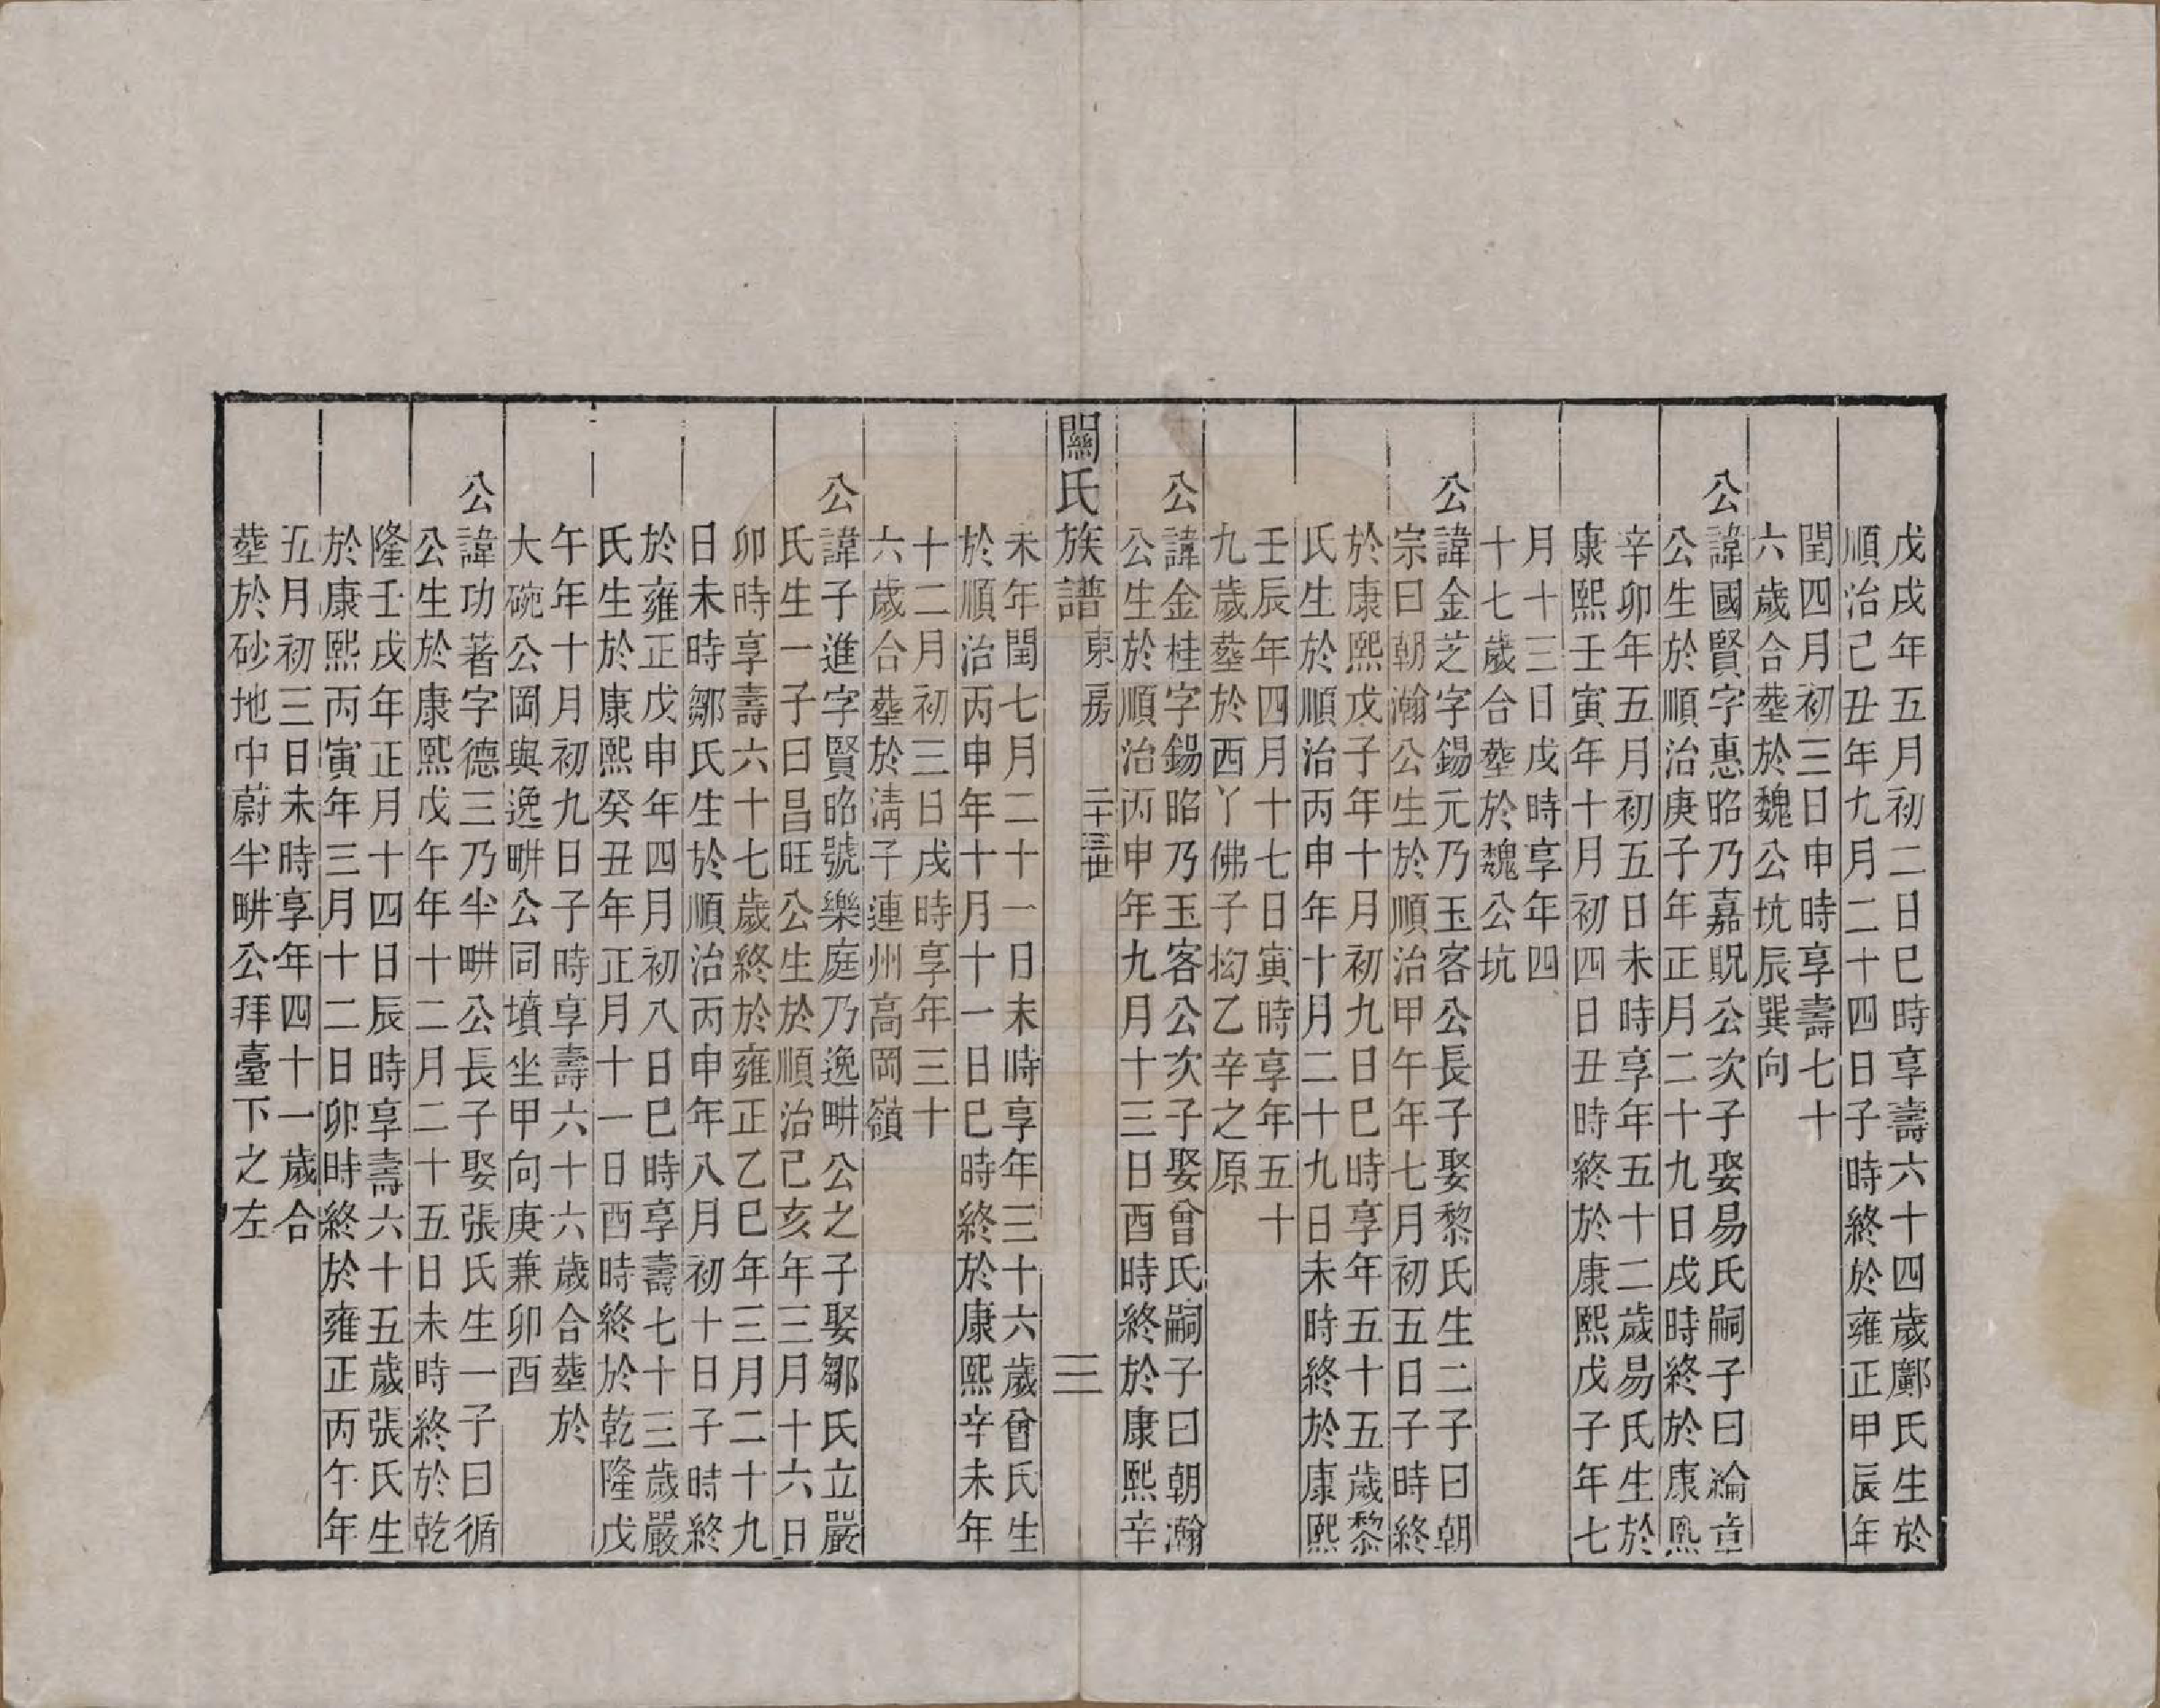 戊戌年五月初二日巳時享壽六十四歲鄺氏生於
順治己丑年九月二十四日子時終於雍正甲辰年
閏四月初三日申時享壽七十
六歲合塟於魏公坑辰巽向
公諱國賢字惠昭乃嘉貺公次子娶易氏嗣子曰綸章
公生於順治庚子年正月二十九日戌時終於康熙
辛卯年五月初五日未時享年五十二歲易氏生於
康熙壬寅年十月初四日丑時終於康熙戊子年七
月十三日戌時享年四
十七歲合塟於魏公坑
公諱金芝字錫元乃玉客公長子娶黎氏生二子曰朝
宗曰朝瀚公生於順治甲午年七月初五日子時終
於康熙戊子年十月初九日巳時享年五十五歲黎
氏生於順治丙申年十月二十九日未時終於康熙
壬辰年四月十七日寅時享年五十
九歲塟於西丫佛子㘭乙辛之原
公諱金桂字錫昭乃玉客公次子娶曾氏嗣子曰朝瀚
公生於順治丙申年九月十三日酉時終於康熙辛
闗氏族譜 東房 二十三世 三
未年閏七月二十一日未時享年三十六歲曾氏生
於順治丙申年十月十一日巳時終於康熙辛未年
十二月初三日戌時享年三十
六歲合塟於淸子連州高岡嶺
公諱子進字賢昭號樂庭乃逸畊公之子娶鄒氏立嚴
氏生一子曰昌旺公生於順治己亥年三月十六日
卯時享壽六十七歲終於雍正乙巳年三月二十九
日未時鄒氏生於順治丙申年八月初十日子時終
於雍正戊申年四月初八日巳時享壽七十三歲嚴
氏生於康熙癸丑年正月十一日酉時終於乾隆戊
午年十月初九日子時享壽六十六歲合塟於
大碗公岡與逸畊公同墳坐甲向庚兼卯酉
公諱功著字德三乃半畊公長子娶張氏生一子曰循
公生於康熙戊午年十二月二十五日未時終於乾
隆壬戌年正月十四日辰時享壽六十五歲張氏生
於康熙丙寅年三月十二日卯時終於雍正丙午年
五月初三日未時享年四十一歲合
塟於砂地中蔚半畊公拜臺下之左